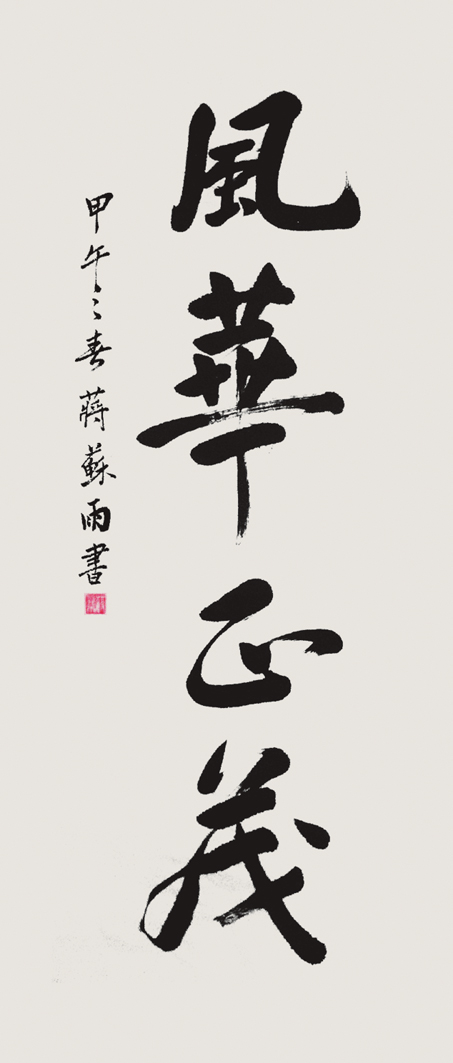 風華正茂
甲午之春蔣蘇雨書